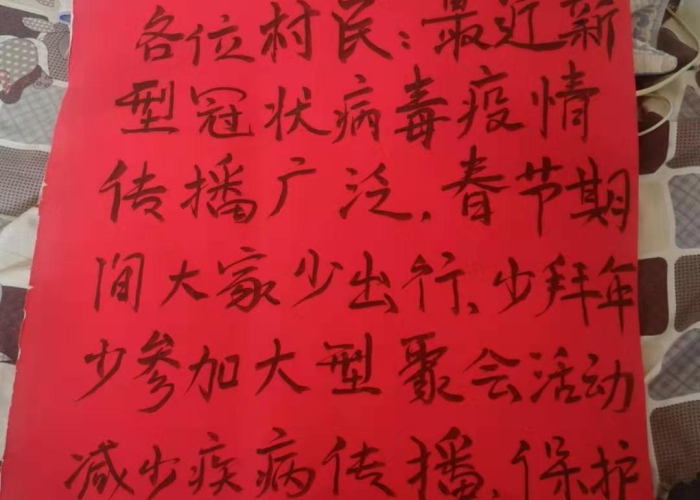 各位村民：最近新
型冠状病毒疫情
传播广泛，春节期
间大家少出行、少拜年
少参加大型聚会活动
减少疾病传播，保护